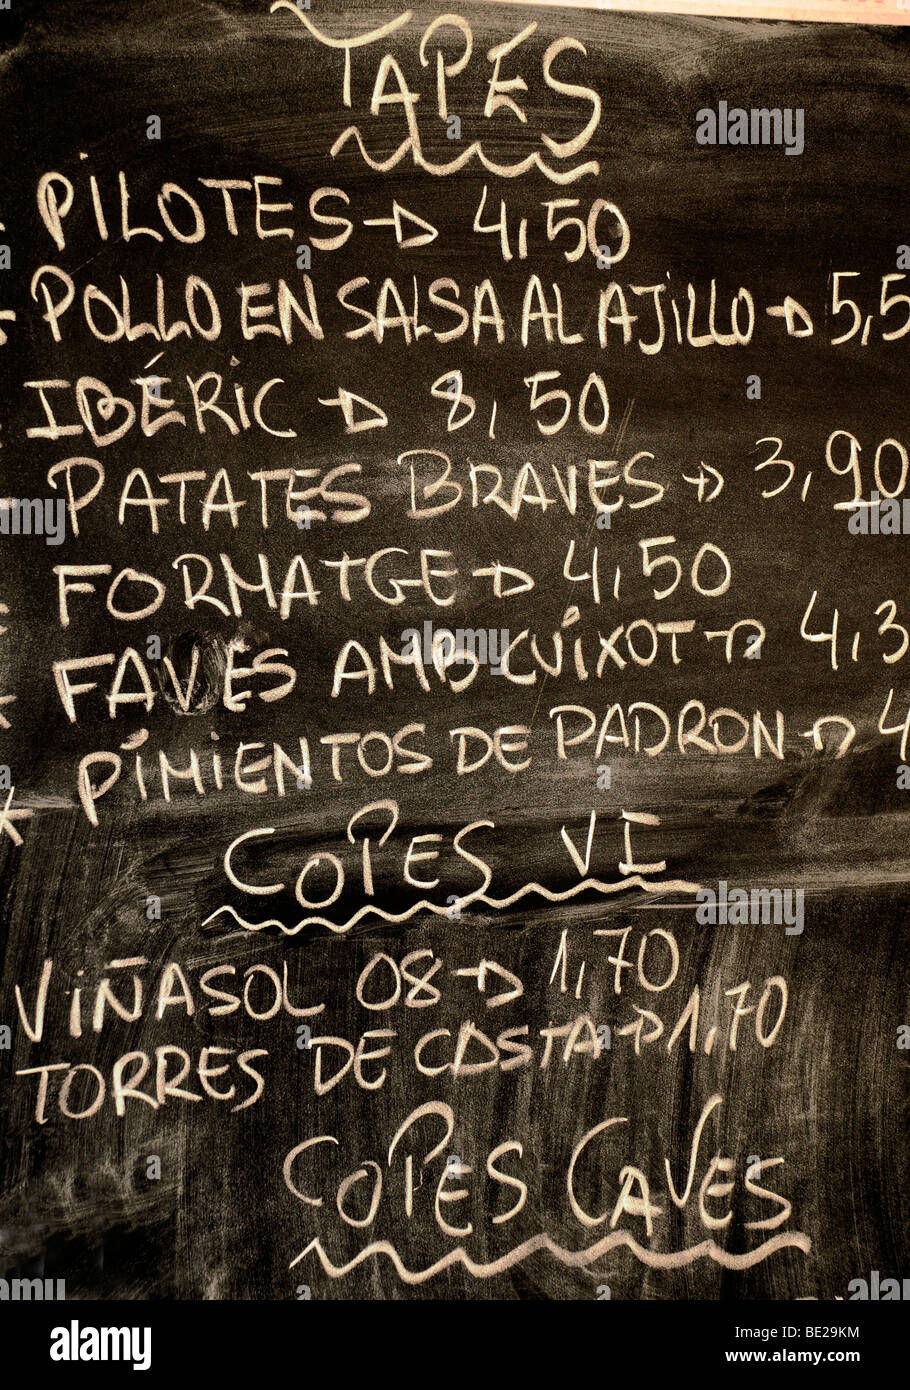 TAPES
PILOTES → 4,50
* POLLO EN SALSA AL AJILLO → 5,5
IBÉRIC → 8,50
* PATATES BRAVES → 3,90
* FORMATGE → 4,50
* FAVES AMB CUIXOT → 4,3
* PIMIENTOS DE PADRON → 4
COPES VI
VIÑASOL 08 → 1,70
TORRES DE COSTA → 1,70
COPES CAVES
alamy
Image ID: BE29KM
www.alamy.com